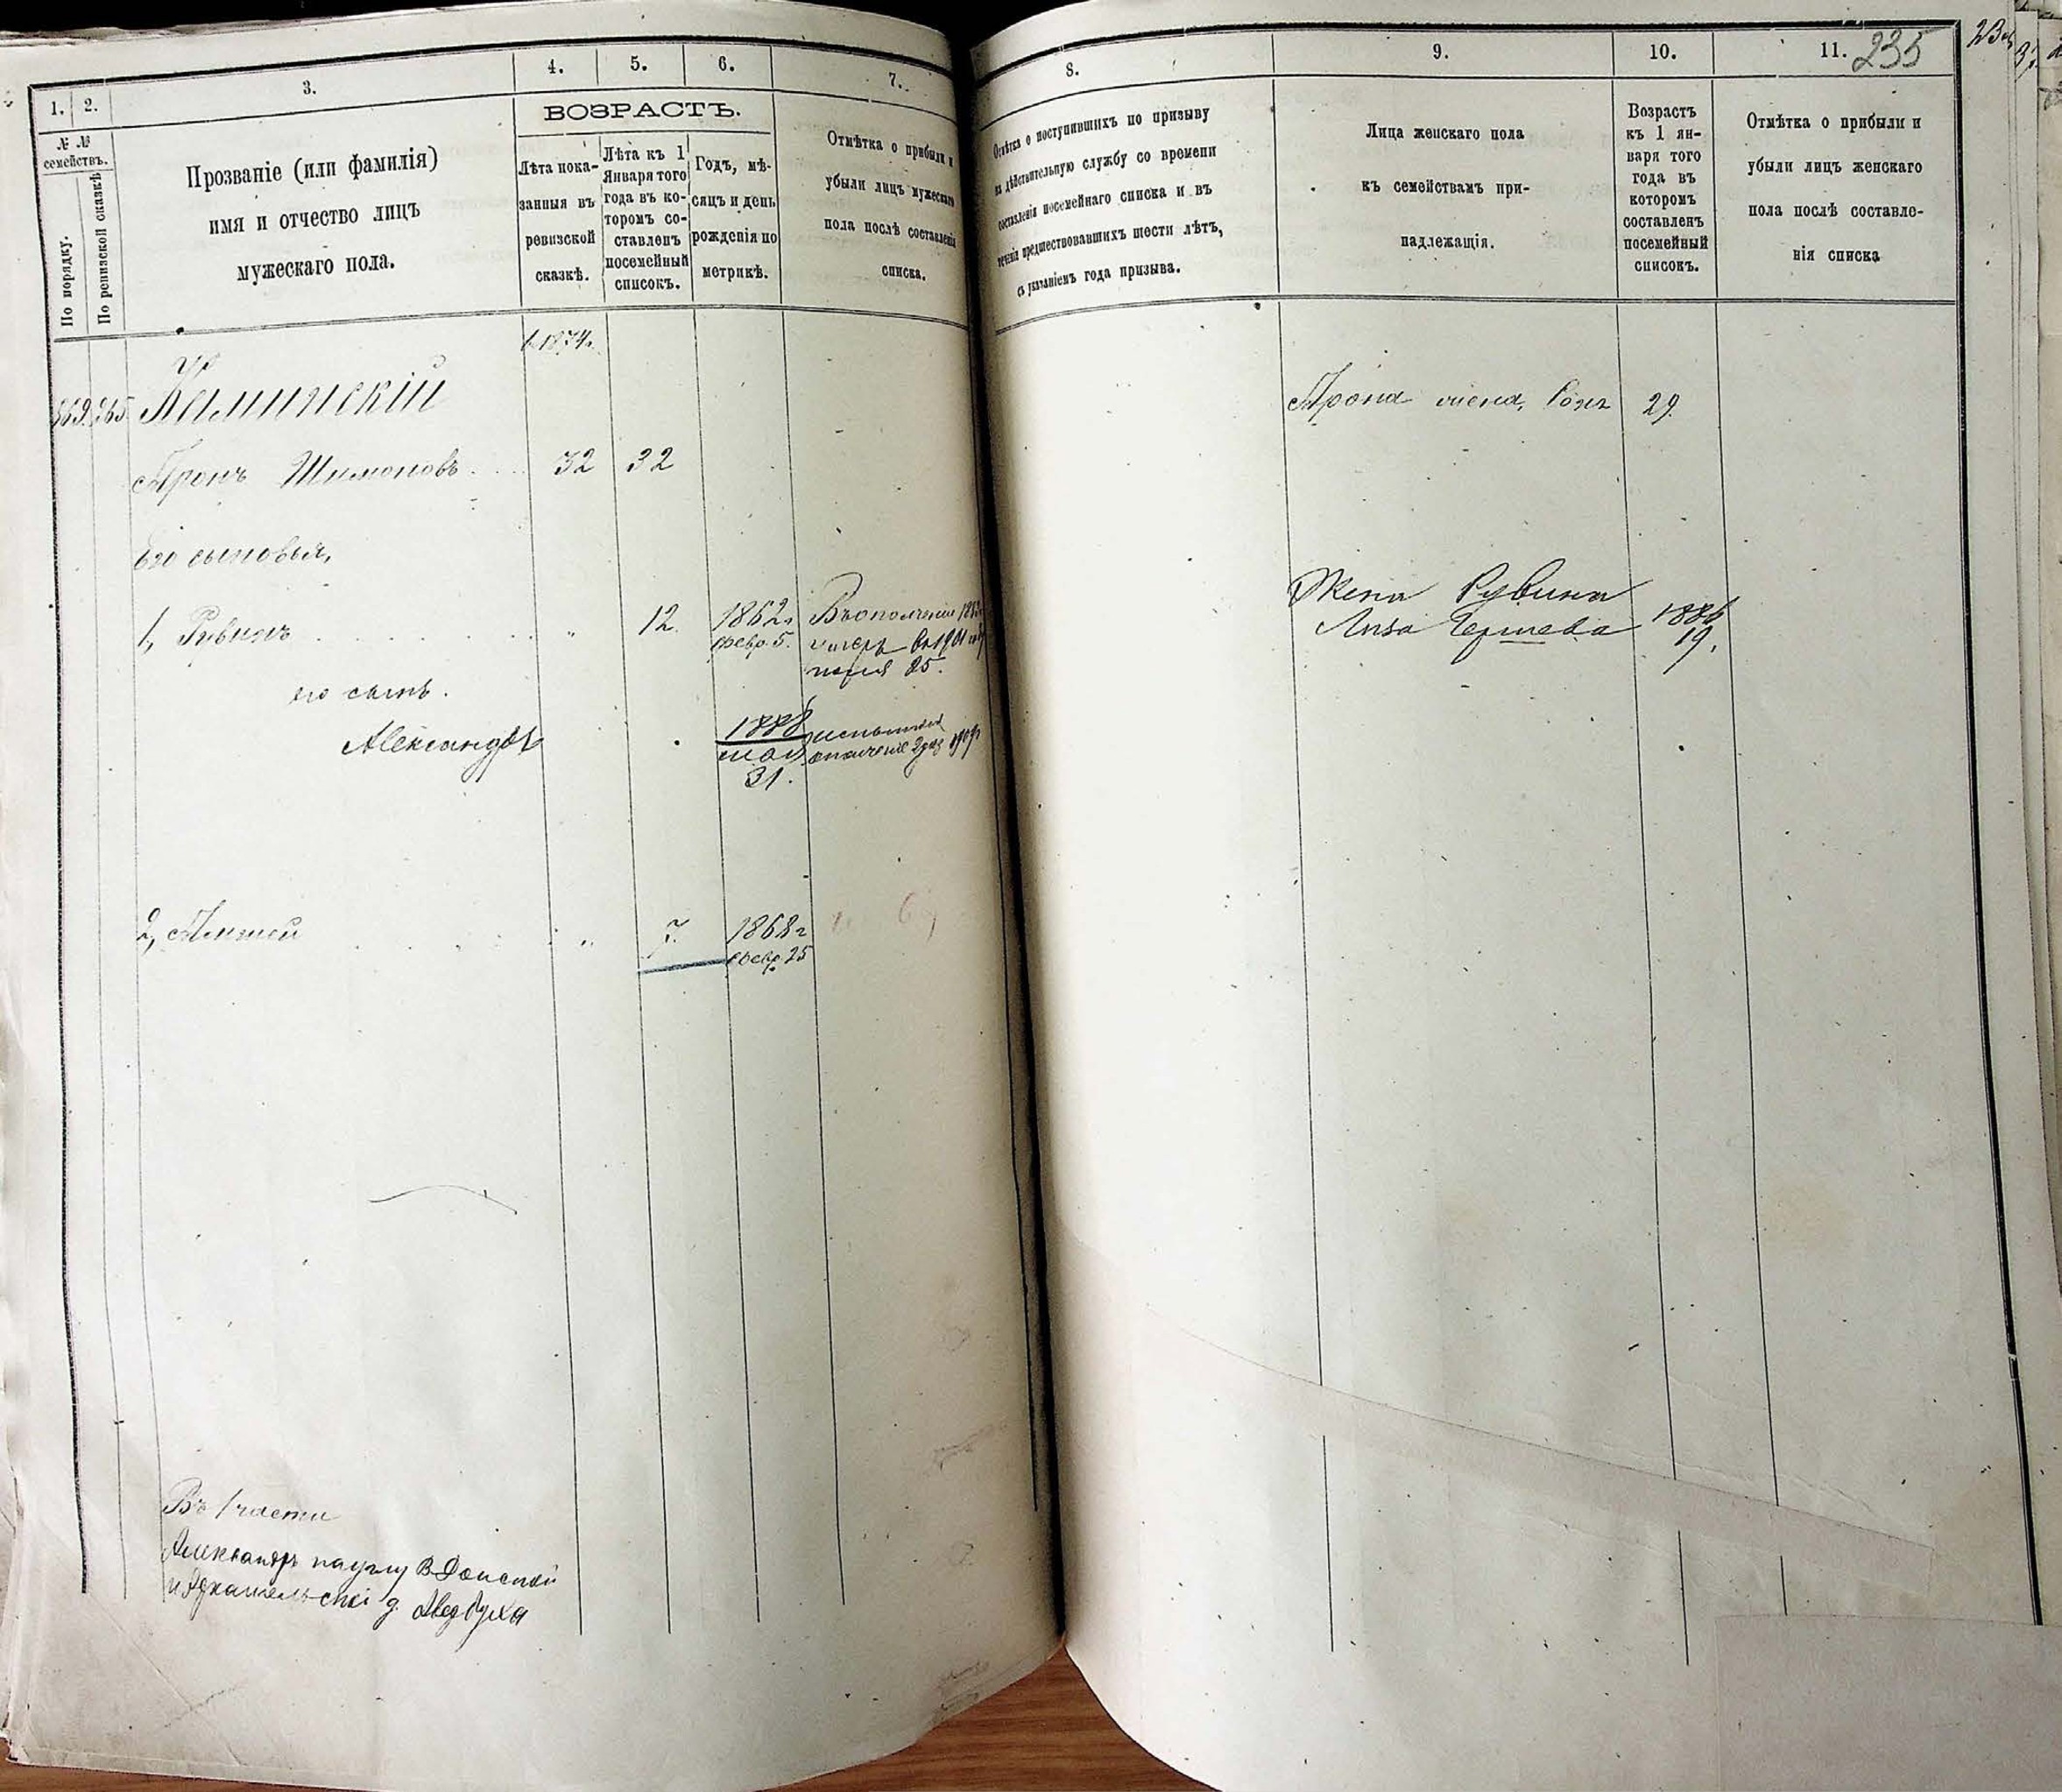 1.
2.
3.
4.
5.
6.
7.
№ №
семействъ.
По порядку.
По ревизской сказкѣ
Прозваніе (или фамилія)
имя и отчество лицъ
мужескаго пола.
ВОЗРАСТЪ.
Лѣта пока-
занныя въ
ревизской
сказкѣ.
Лѣта къ 1
Января того
года въ ко-
торомъ со-
ставленъ
посемейный
списокъ.
Годъ, мѣ-
сяцъ и день
рожденія по
метрикѣ.
Отмѣтка о прибыли и
убыли лицъ мужескаго
пола послѣ составленія
списка.
1874.
265
Каминскій
Аронъ Шимоновъ 32 32
Его сыновья,
1, Рувинъ " 12. 1862г
февр. 5.
Въ ополченіи
умеръ 1901
25.
его сынъ.
Александръ 1888
мая
31.
ополченіе 1909
2, " 7. 1868г
февр. 25
Въ 1 части
Александръ
8.
9.
10.
11.
235
Отмѣтка о поступившихъ по призыву
на дѣйствительную службу со времени
составленія посемейнаго списка и въ
теченіи предшествовавшихъ шести лѣтъ,
съ указаніемъ года призыва.
Лица женскаго пола
къ семействамъ при-
надлежащія.
Возрастъ
къ 1 ян-
варя того
года въ
которомъ
составленъ
посемейный
списокъ.
Отмѣтка о прибыли и
убыли лицъ женскаго
пола послѣ составле-
нія списка
Арона жена, 29.
Жена Рувина
Лиза Гершева 1886
19.